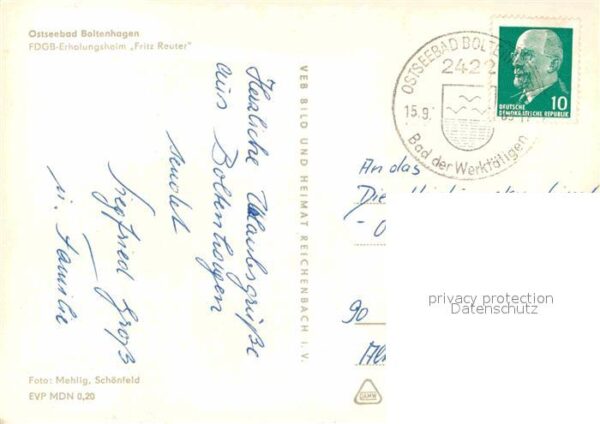 Ostseebad Boltenhagen
FDGB-Erholungsheim „Fritz Reuter"
Herzliche Urlaubsgrüße
aus Boltenhagen
sendet
Siegfried Groß
u. Familie
Foto: Mehlig, Schönfeld
EVP MDN 0,20
VEB BILD UND HEIMAT REICHENBACH I. V.
OSTSEEBAD BOLTEN
2422
15.9.
Bad der Werktätigen
10
DEUTSCHE
DEMOKRATISCHE REPUBLIK
An das
90
privacy protection
Datenschutz